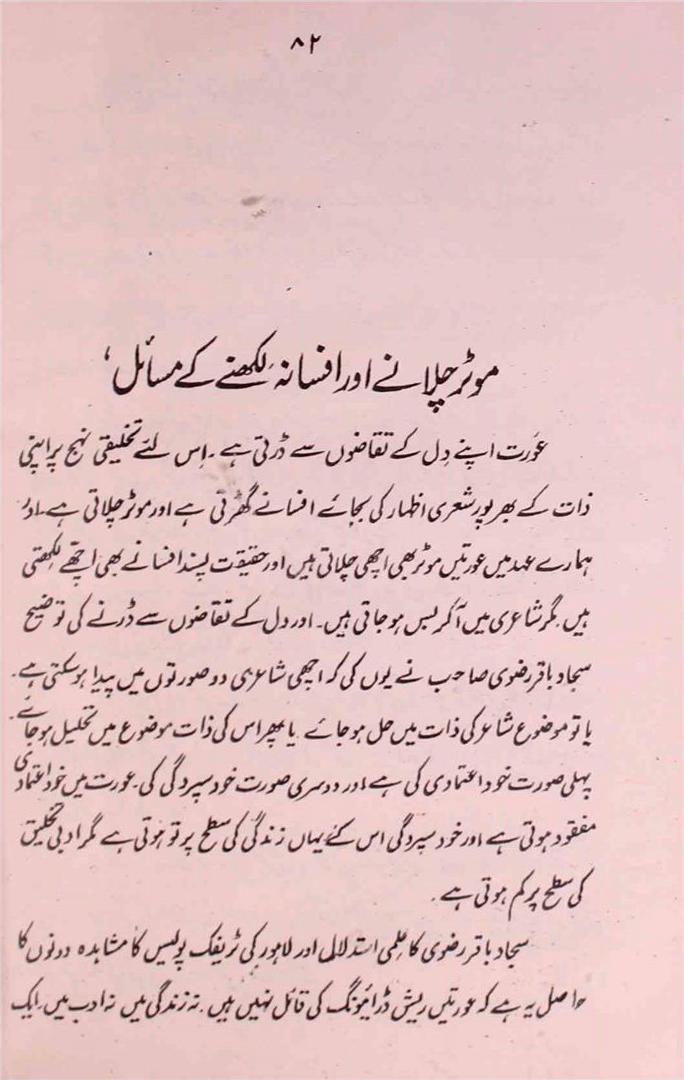 ۸۲
موٹر چلانے اور افسانہ لکھنے کے مسائل ،
عورت اپنے دِل کے تقاضوں سے ڈرتی ہے ۔ اِس لئے تخلیقی نہج پر اپنی
ذات کے بھرپور شعری اظہار کی بجائے افسانے گھڑتی ہے اور موٹر چلاتی ہے ۔ اور
ہمارے عہد میں عورتیں موٹر بھی اچھی چلاتی ہیں اور حقیقت پسند افسانے بھی اچھے لکھتی
ہیں مگر شاعری میں آ کر بس ہو جاتی ہیں ۔ اور دل کے تقاضوں سے ڈرنے کی توضیح
سجاد باقر رضوی صاحب نے یوں کی کہ اچھی شاعری دو صورتوں میں پیدا ہو سکتی ہے ۔
یا تو موضوع شاعر کی ذات میں حل ہو جائے یا پھر اس کی ذات موضوع میں تحلیل ہو جائے ۔
پہلی صورت خود اعتمادی کی ہے اور دوسری صورت خود سپردگی کی ۔ عورت میں خود اعتمادی
مفقود ہوتی ہے اور خود سپردگی اس کے یہاں زندگی کی سطح پر تو ہوتی ہے مگر ادبی تخلیق
کی سطح پر کم ہوتی ہے ۔
سجاد باقر رضوی کا علمی استدلال اور لاہور کی ٹریفک پولیس کا مشاہدہ دونوں کا
حاصل یہ ہے کہ عورتیں ریش ڈرائیونگ کی قائل نہیں ہیں ۔ نہ زندگی میں نہ ادب میں ۔ ایک